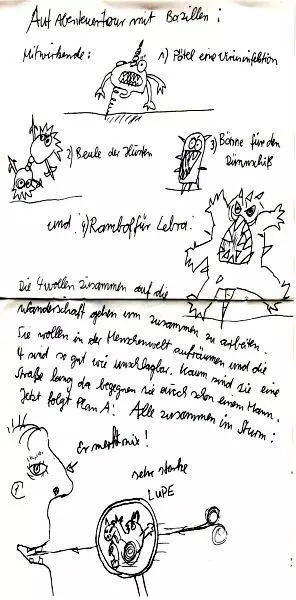 Auf Abenteuertour mit Bazillen:
Mitwirkende:
1) Pötel eine Virusinfektion
2) Beule der Husten
3) Bönne für den
Dünnschiß
und: 4) Rambolf für Lebra.
Die 4 wollen zusammen auf die
Wanderschaft gehen um zusammen zu arbeiten.
Sie wollen in der Menschenwelt aufräumen und die
4 sind so gut wie unschlagbar. Kaum sind sie eine
Straße lang da begegnen sie auch schon einem Mann.
Jetzt folgt Plan A: Alle zusammen im Sturm:
Er merkt nix!
sehr starke
LUPE